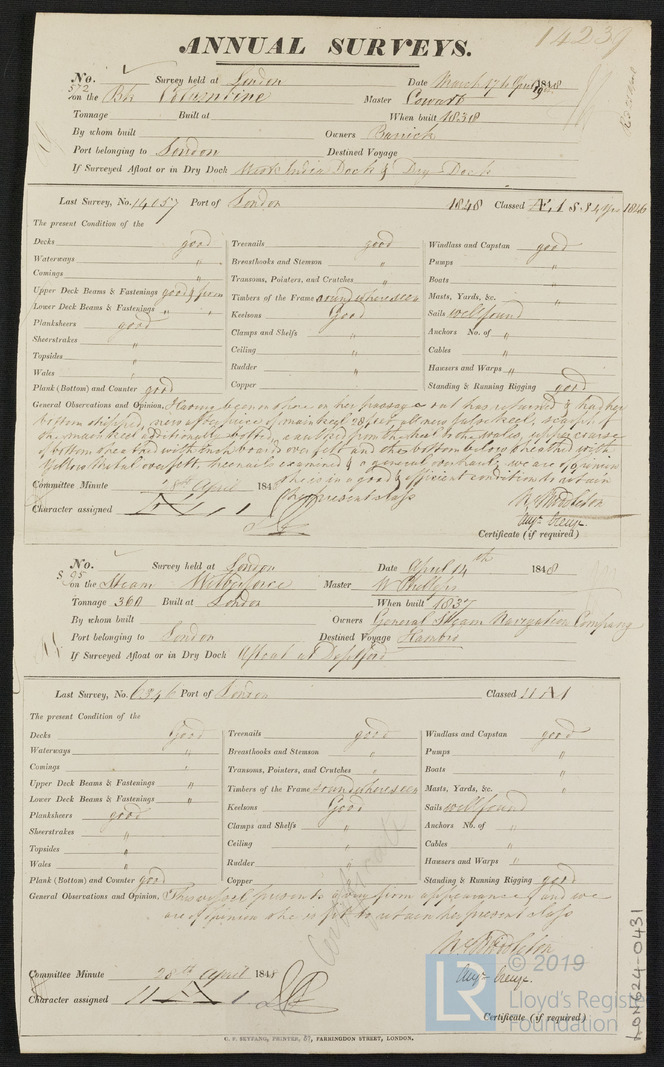 14237
ANNUAL SURVEYS.
No. Survey held at London Date March 17 to April 19 1848
572 on the Bk Valentine Master Cowart
Tonnage Built at When built 1838
By whom built Owners
Port belonging to London Destined Voyage
If Surveyed Afloat or in Dry Dock West India Dock & Dry Dock
Last Survey, No. 14057 Port of London 1848 Classed Æ 1 S S 4 Yrs 1846
The present Condition of the
Decks good Treenails good Windlass and Capstan good
Waterways " Breasthooks and Stemson " Pumps "
Comings " Transoms, Pointers, and Crutches " Boats "
Upper Deck Beams & Fastenings good & firm Timbers of the Frame sound where seen Masts, Yards, &c. "
Lower Deck Beams & Fastenings " " Keelsons Good Sails well found
Planksheers good Clamps and Shelfs " Anchors No. of "
Sheerstrakes " Ceiling " Cables "
Topsides " Rudder " Hausers and Warps "
Wales " Copper Standing & Running Rigging good
Plank (Bottom) and Counter good
General Observations and Opinion, Having been on shore on her passage out has returned & had her
bottom stripped, new after piece of main keel 28 feet, all new false keel, scarphs of
the main keel additionally bolted, caulked from the keel to the wales, upper course
of bottom sheathed with inch board over felt and the bottom below sheathed with
Yellow Metal over felt, treenails examined & a general overhaul; we are of opinion
she is in a good & efficient condition to retain
her present class
Committee Minute 18th April 1848
Character assigned Æ 1
W Middleton
Augs. Creuze
Certificate (if required)
No. Survey held at London Date April 14th 1848
on the Steam Wilberforce Master W Phillips
Tonnage 360 Built at London When built 1837
By whom built Owners General Steam Navigation Company
Port belonging to London Destined Voyage Hambro
If Surveyed Afloat or in Dry Dock Afloat at Deptford
Last Survey, No. 6346 Port of London Classed 11 A 1
The present Condition of the
Decks Good Treenails good Windlass and Capstan good
Waterways " Breasthooks and Stemson " Pumps "
Comings " Transoms, Pointers, and Crutches " Boats "
Upper Deck Beams & Fastenings " Timbers of the Frame sound where seen Masts, Yards, &c. "
Lower Deck Beams & Fastenings " Keelsons Good Sails well found
Planksheers good Clamps and Shelfs " Anchors No. of "
Sheerstrakes " Ceiling " Cables "
Topsides " Rudder " Hausers and Warps "
Wales " Copper Standing & Running Rigging good
Plank (Bottom) and Counter good
General Observations and Opinion, This vessel presents a firm appearance, and we
are of opinion she is fit to retain her present class
Certificate
W Middleton
Augs. Creuze.
Committee Minute 28th April 1848
Character assigned 11 A 1
Certificate (if required)
G. F. SKYFANG, PRINTER, 57, FARRINGDON STREET, LONDON.
© 2019
LR
Lloyd's Register
Foundation
LON624-0431